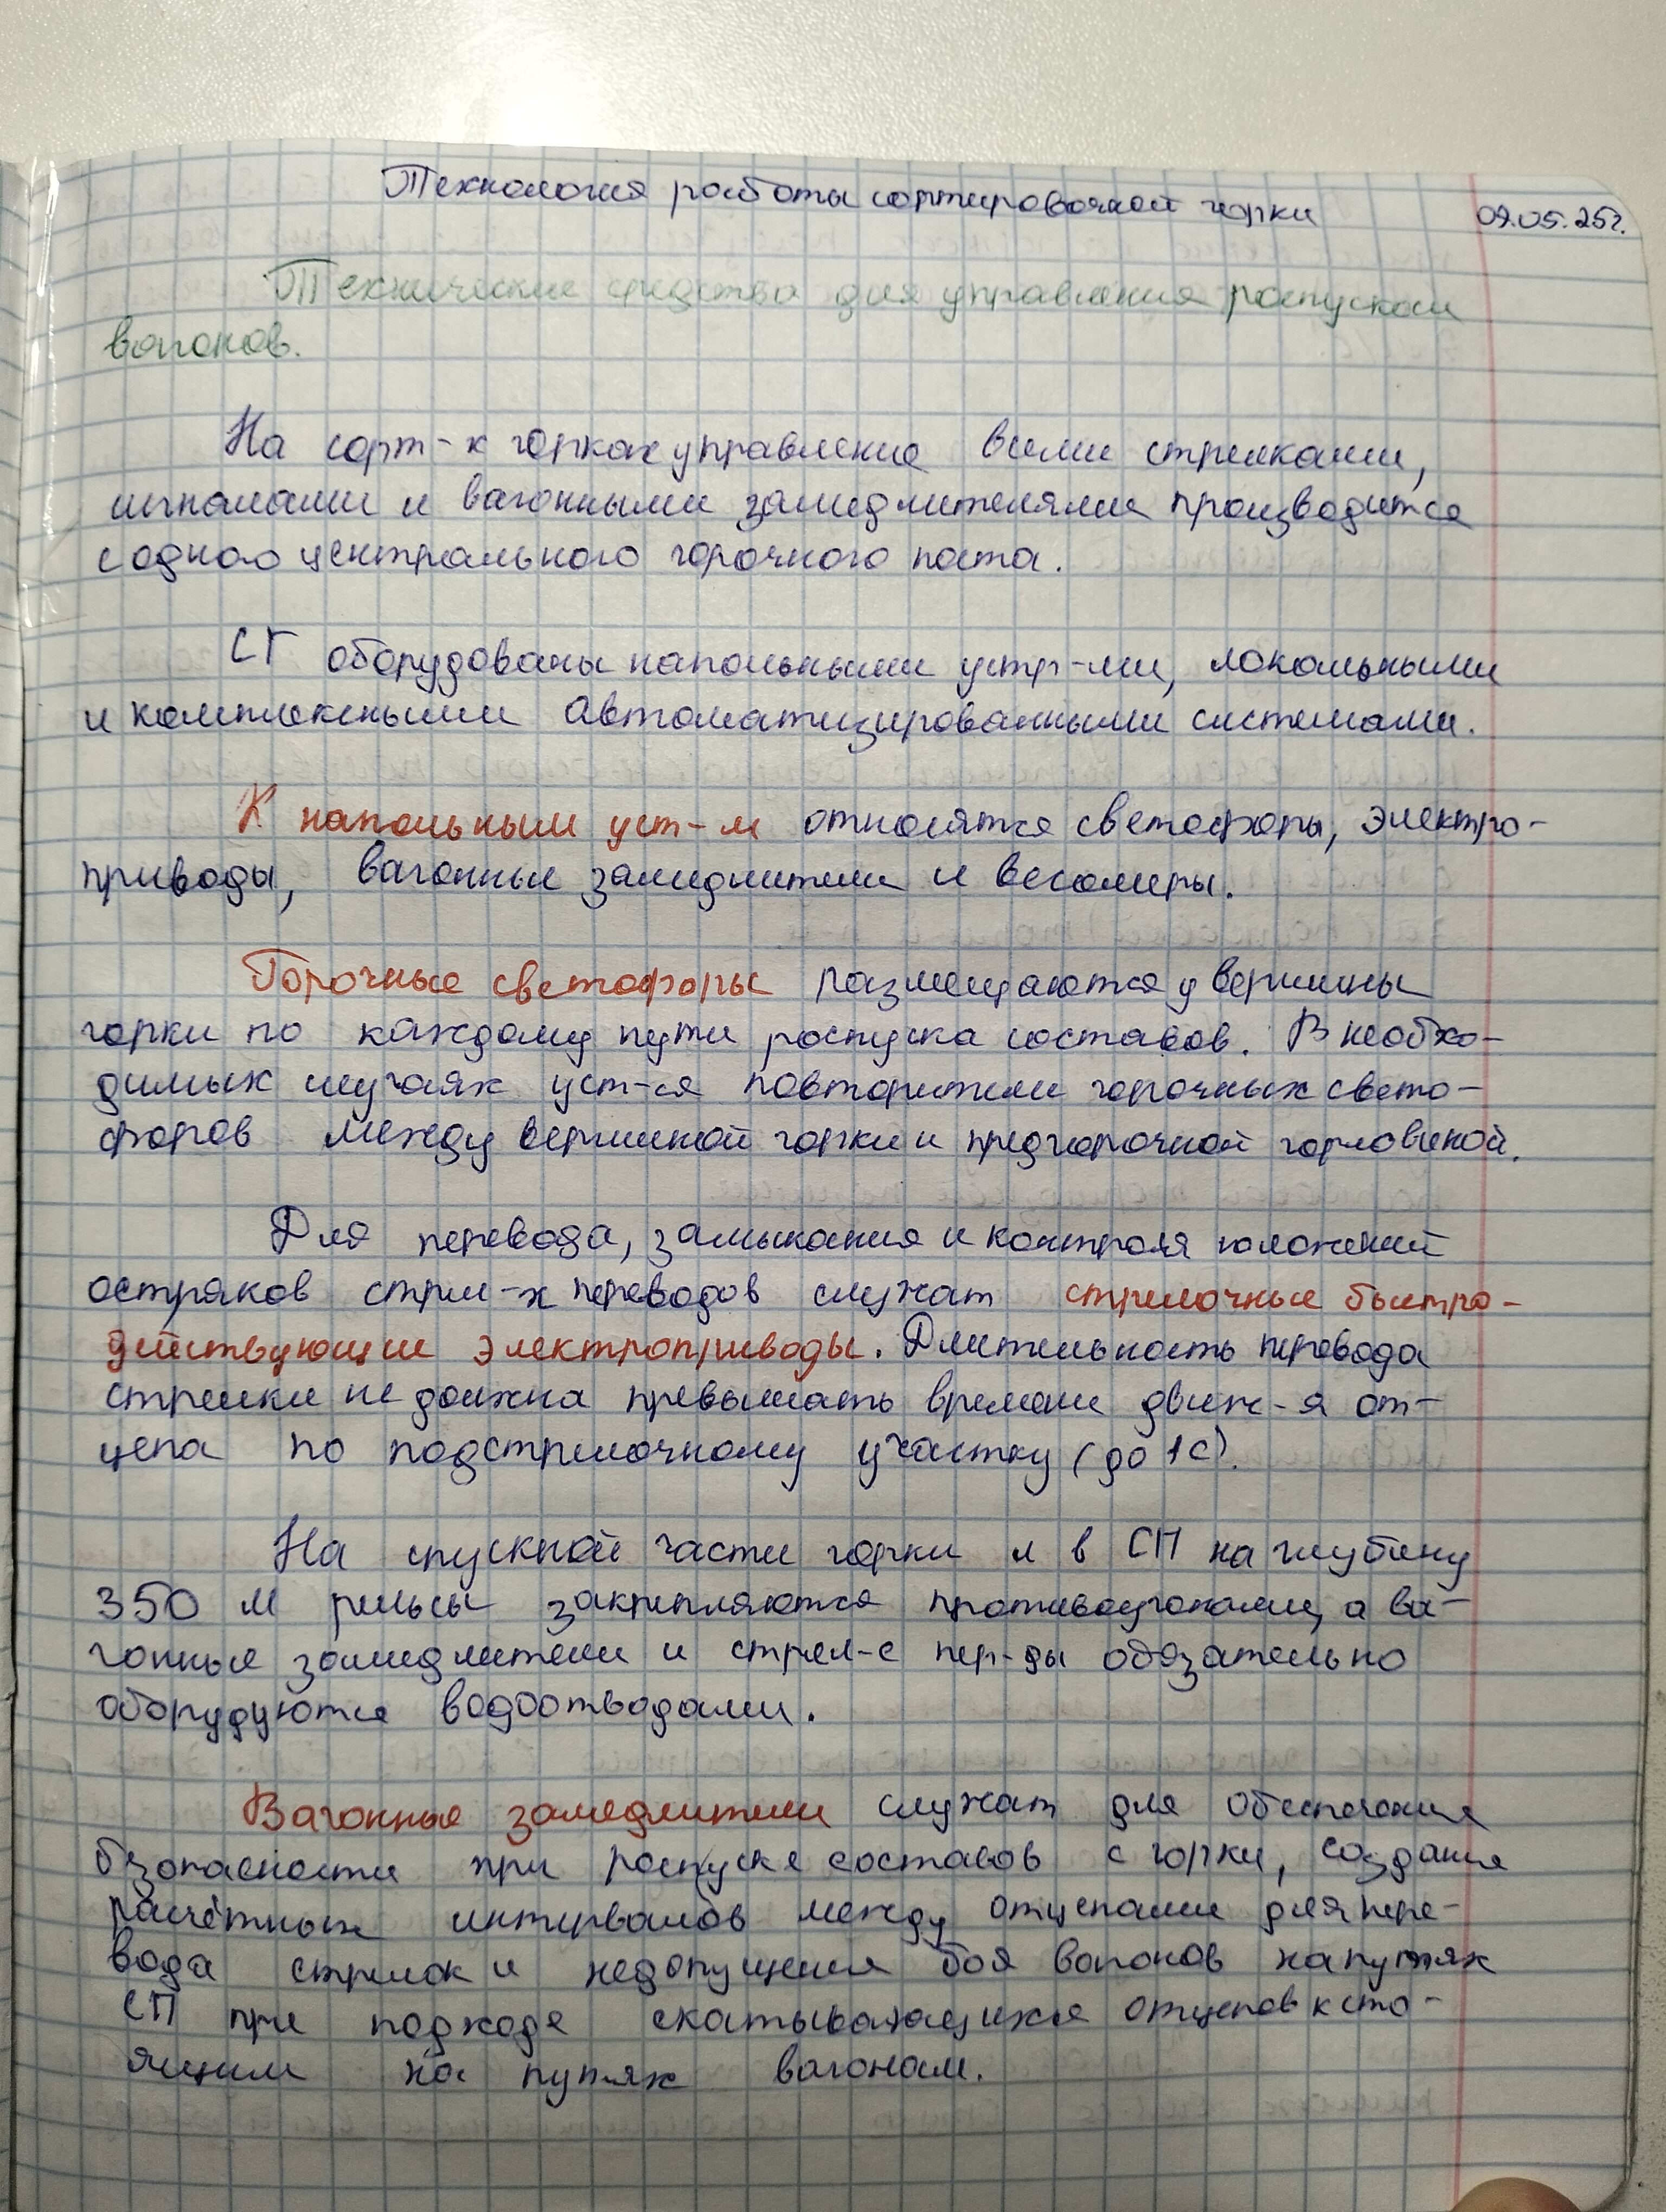 Технология работы сортировочной горки
09.05.25г.
Технические средства для управления роспуском
вагонов.
На сорт-х горках управление всеми стрелками,
сигналами и вагонными замедлителями производится
с одного центрального горочного поста.
СГ оборудованы напольными устр-ми, локальными
и комплексными автоматизированными системами.
К напольным уст-м относятся светофоры, электро-
приводы, вагонные замедлители и весомеры.
Горочные светофоры размещаются у вершины
горки по каждому пути роспуска составов. В необхо-
димых случаях уст-ся повторители горочных свето-
форов между вершиной горки и предгорочной горловиной.
Для перевода, замыкания и контроля положений
остряков стрел-х переводов служат стрелочные быстро-
действующие электроприводы. Длительность перевода
стрелки не должна превышать времени движ-я от-
цепа по подстрелочному участку (до 1с).
На спускной части горки и в СП на глубину
350 м рельсы закрепляются противоугонами, а ва-
гонные замедлители и стрел-е пер-ды обязательно
оборудуются водоотводами.
Вагонные замедлители служат для обеспечения
безопасности при роспуске составов с горки, создания
расчётных интервалов между отцепами для пере-
вода стрелок и недопущения боя вагонов на путях
СП при подходе скатывающихся отцепов к сто-
ящим на путях вагонам.